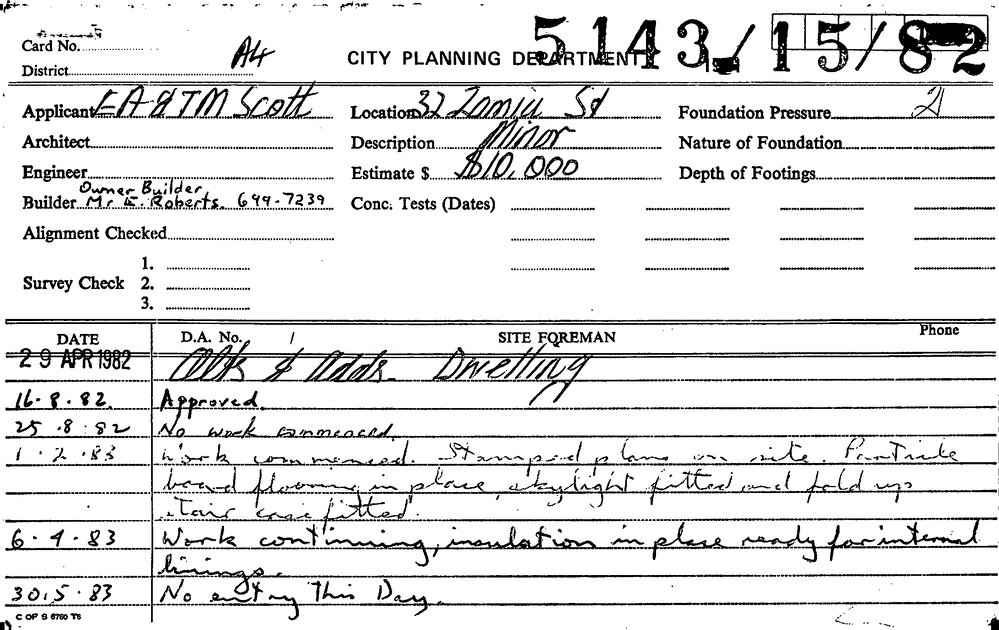 Card No.
District A4
CITY PLANNING DEPARTMENT
5143/15/82
Applicant EA & TM Scott
Location 32 Zamia St
Foundation Pressure 21
Architect
Description Minor
Nature of Foundation
Engineer
Estimate $ $10,000
Depth of Footings
Owner Builder
Builder Mr E. Roberts. 699-7239
Conc. Tests (Dates)
Alignment Checked
Survey Check
1.
2.
3.
DATE D.A. No. SITE FOREMAN Phone
29 APR 1982 Alts & Adds. Dwelling
16.8.82. Approved.
25.8.82 No work commenced.
1.2.83 Work commenced. Stamped plans on site. Particle
board flooring in place, skylight fitted and fold up
stair case fitted.
6.4.83 Work continuing, insulation in place ready for internal
linings.
30.5.83 No entry This Day.
C OF S 6760 T6